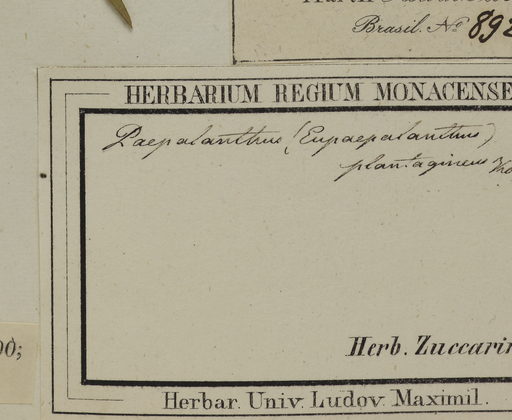 Brasil. No 892
HERBARIUM REGIUM MONACENSE
Paepalanthus (Eupaepalanthus)
plantagineus
Herb. Zuccarin
00;
Herbar. Univ. Ludov. Maximil.